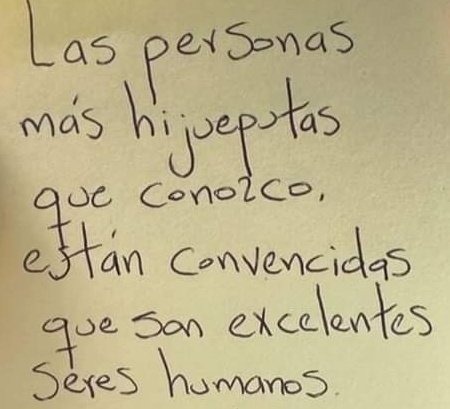 Las personas
más hijueputas
que conozco,
están convencidas
que son excelentes
seres humanos.